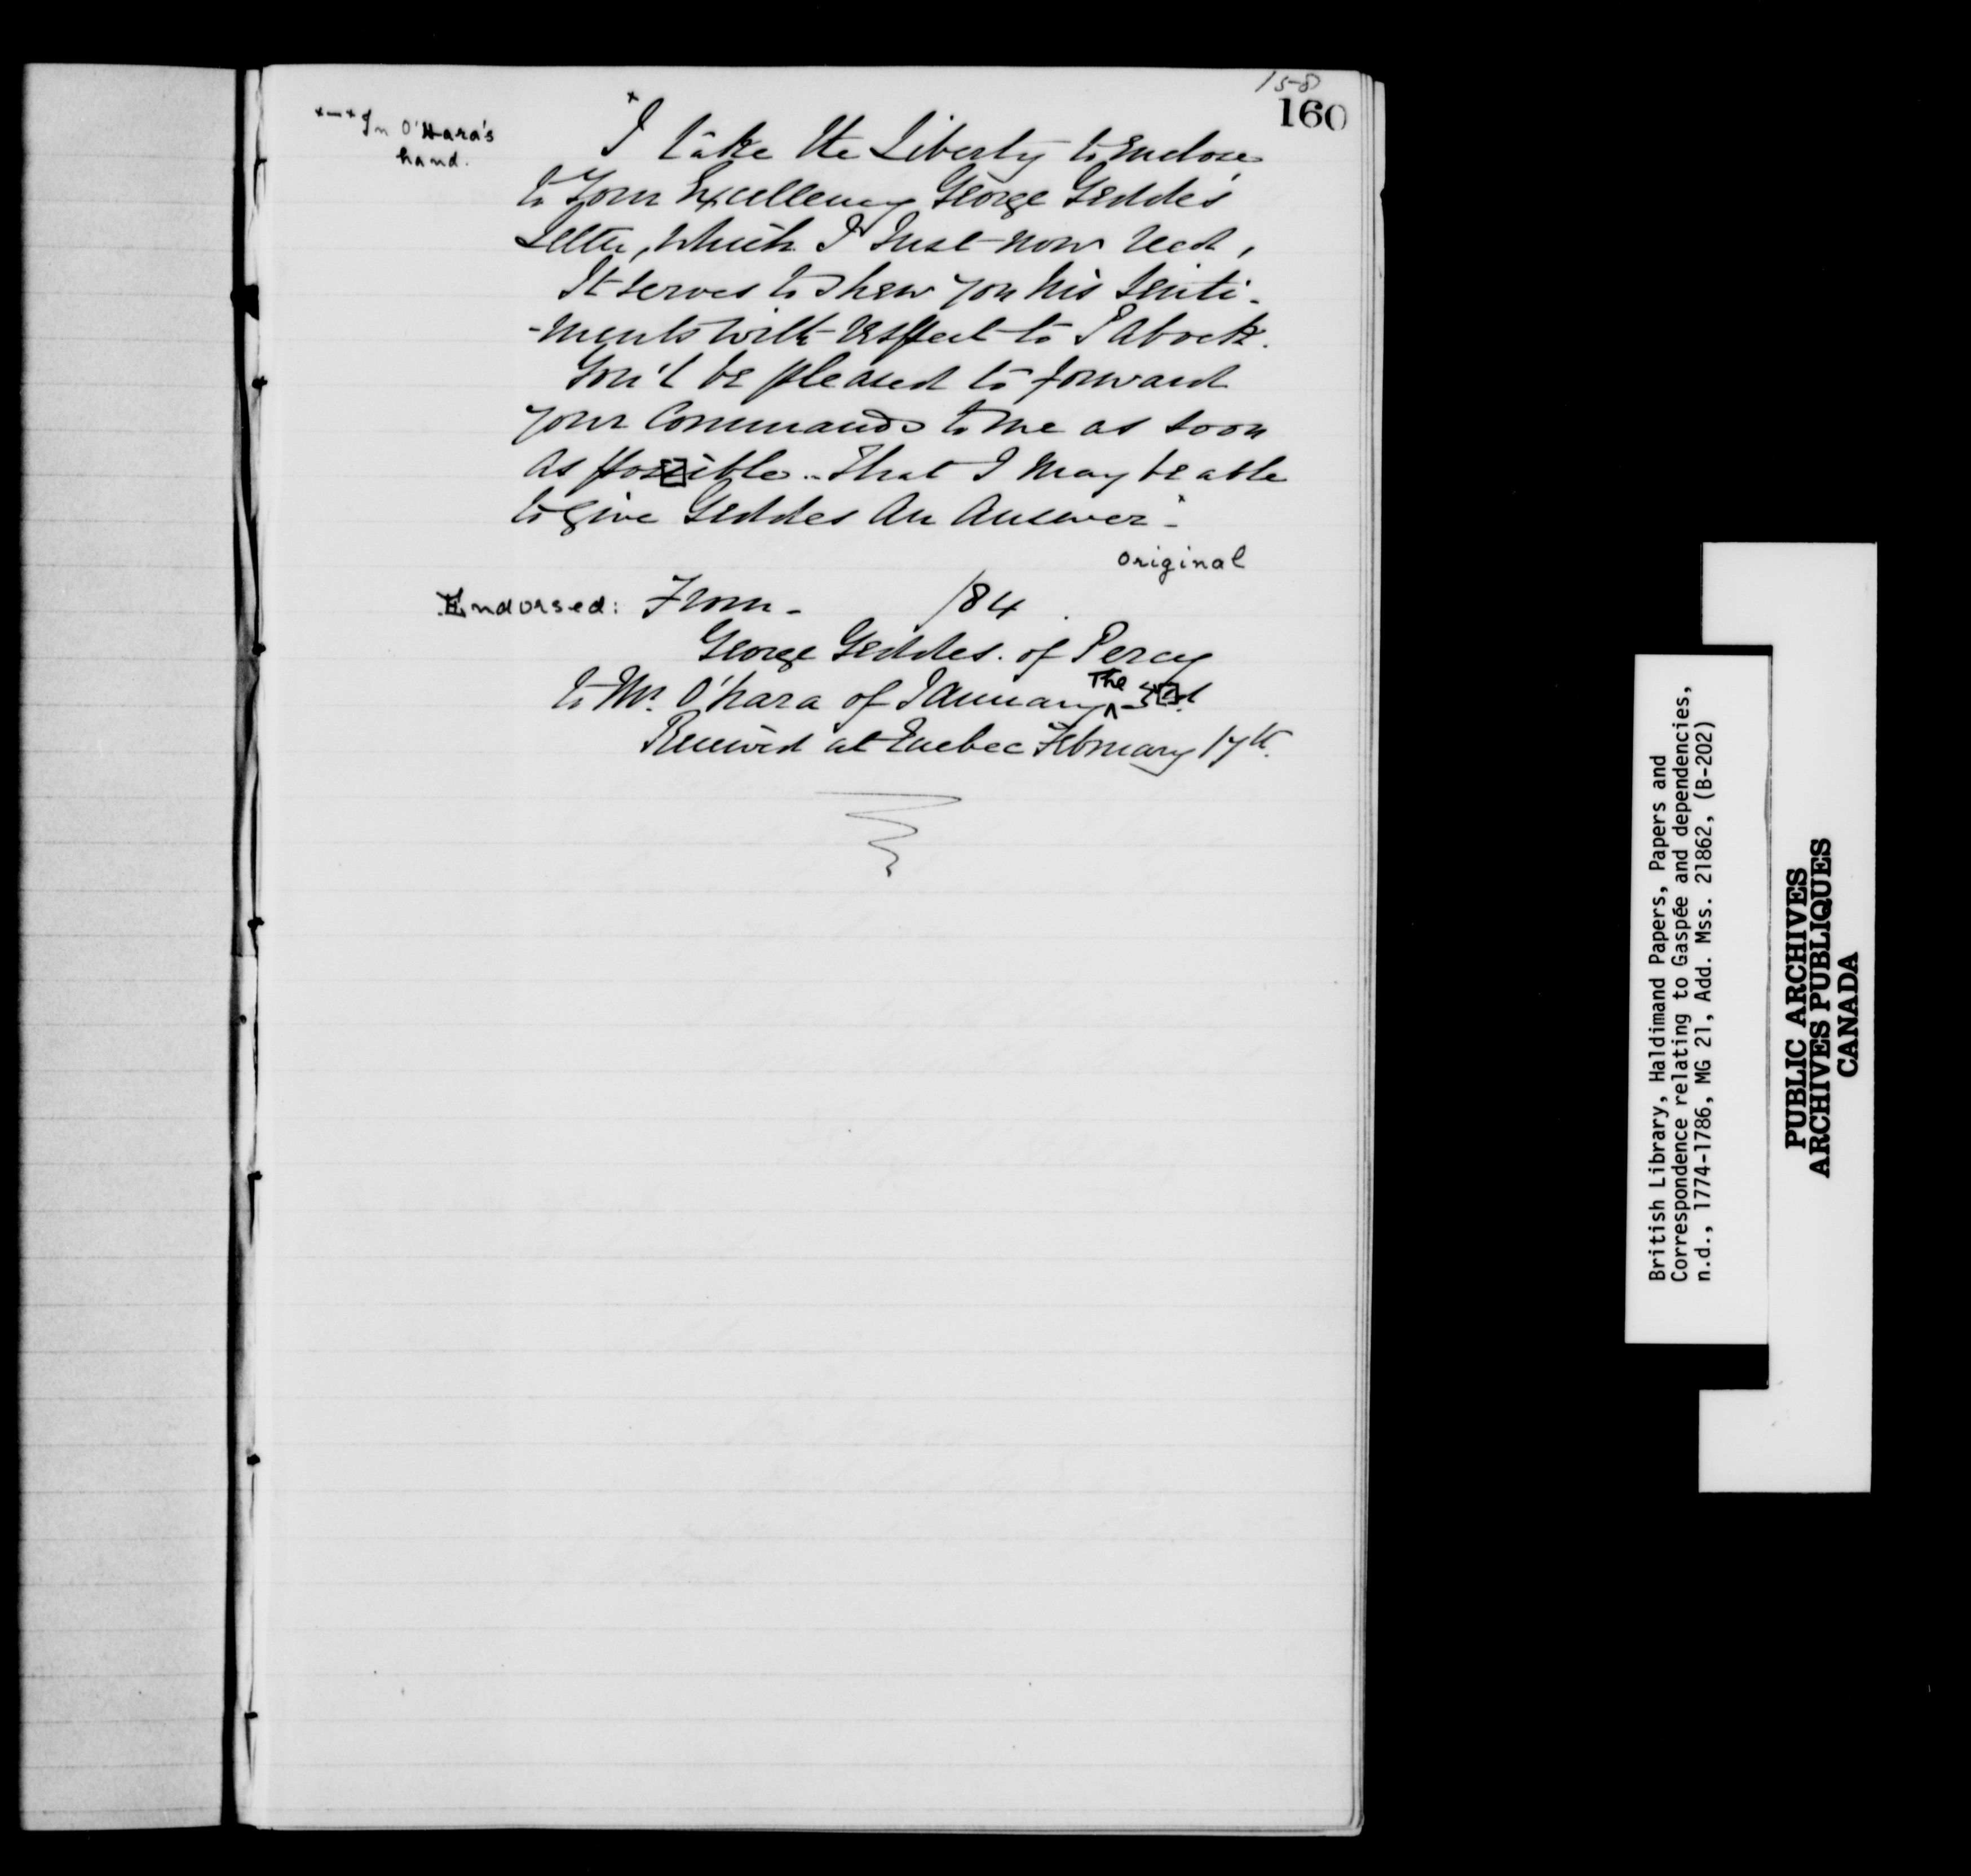 158
160
x—x In O'Hara's
hand.
x I take the Liberty to Enclose
to Your Excellency George Geddes
Letter, which I Just now Recd,
It serves to Shew you his Senti-
-ments with respect to Pabock.
You'l be pleased to forward
your Commands to me as soon
as possible.. that I may be able
to give Geddes An Answer x -
original
Endorsed: From - /84.
George Geddes. of Percey
to Mr. O'hara of January The 3d
Received at Quebec February 17th.
British Library, Haldimand Papers, Papers and
Correspondence relating to Gaspée and dependencies,
n.d., 1774-1786, MG 21, Add. Mss. 21862, (B-202)
PUBLIC ARCHIVES
ARCHIVES PUBLIQUES
CANADA